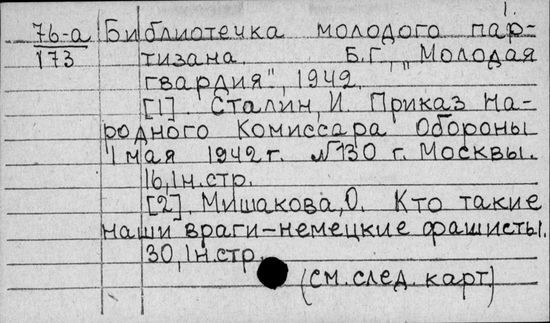 76-а Библиотечка молодого пар-
173 тизана. Б.Г., „Молодая
гвардия", 1942.
[1]. Сталин, И. Приказ На-
родного Комиссара Обороны
1 мая 1942 г. №130 г. Москвы.
16,1н.стр.
[2]. Мишакова, О. Кто такие
наши враги-немецкие фашисты.
30,1н.стр.
(см.след.карт)